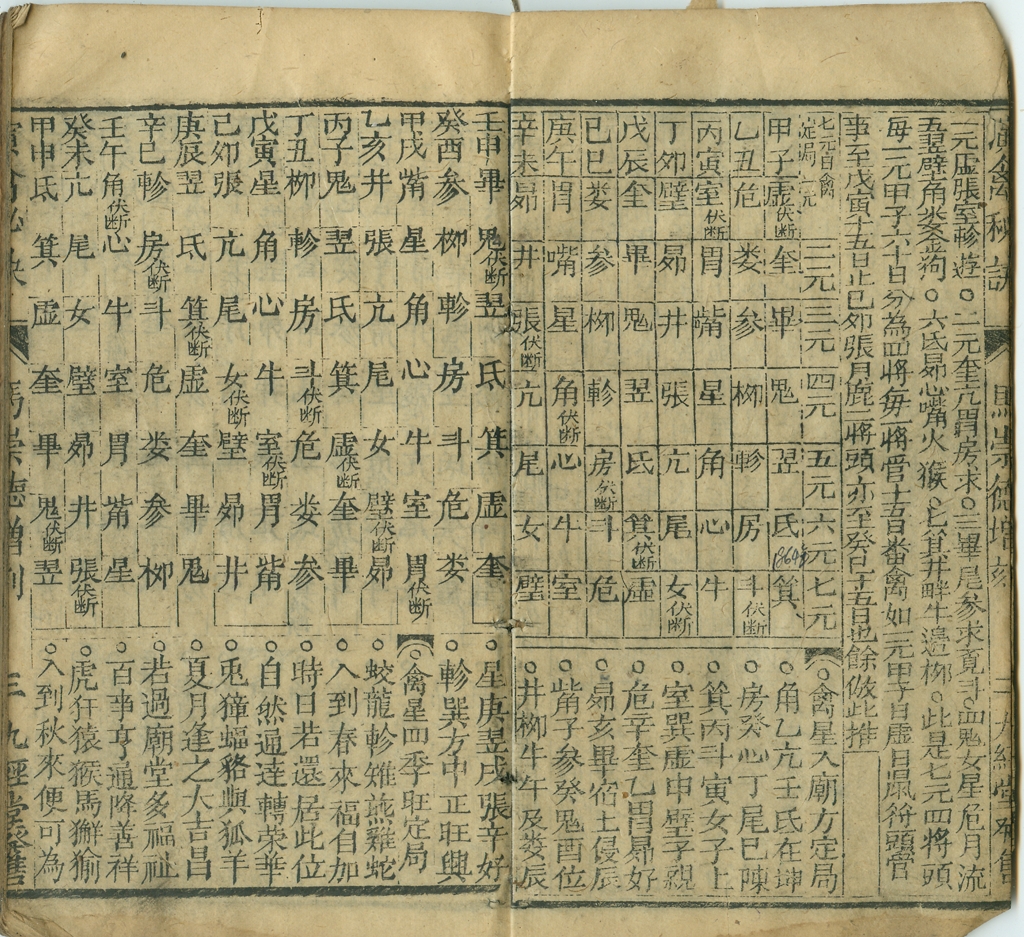 演禽秘訣 馬崇德增刻 二 九經堂發售
一元虛張室軫遊○二元奎亢胃房求○三畢尾參求竟斗○四鬼女星危月流
五翌壁角娄金狗○六氐昴心嘴火猴○七箕井畔牛邊柳○此是七元四將頭
每一元甲子六十日分為四將每一將管十五日番禽如一元甲子日虛日鼠符頭管
事至戊寅十五日止己卯張月鹿二將頭亦至癸巳十五日也餘倣此推
七元日禽定局 一元 二元 三元 四元 五元 六元 七元
甲子 虛伏断 奎 畢 鬼 翌 氐 箕
乙丑 危 娄 參 柳 軫 房 斗伏断
丙寅 室伏断 胃 嘴 星 角 心 牛
丁卯 壁 昴 井 張 亢 尾 女伏断
戊辰 奎 畢 鬼 翌 氐 箕伏断 虛
己巳 娄 參 柳 軫 房伏断 斗 危
庚午 胃 嘴 星 角伏断 心 牛 室
辛未 昴 井 張伏断 亢 尾 女 壁
○禽星入廟方定局
○角乙亢壬氐在坤
○房癸心丁尾巳陳
○箕丙斗寅女子上
○室巽虛申壁子親
○危辛奎乙胃昴好
○昴亥畢宿土侵辰
○觜子參癸鬼酉位
○井柳牛午及娄辰
壬申畢 鬼伏断 翌 氐 箕 虛 奎
癸酉參 柳 軫 房 斗 危 娄
甲戌觜 星 角 心 牛 室 胃伏断
乙亥井 張 亢 尾 女 壁伏断 昴
丙子鬼 翌 氐 箕 虛伏断 奎 畢
丁丑柳 軫 房 斗伏断 危 娄 参
戊寅星 角 心 牛 室伏断 胃 觜
己卯張 亢 尾 女伏断 壁 昴 井
庚辰翌 氐 箕伏断 虛 奎 畢 鬼
辛巳軫 房伏断 斗 危 娄 參 柳
壬午角伏断 心 牛 室 胃 觜 星
癸未亢 尾 女 壁 昴 井 張伏断
甲申氐 箕 虛 奎 畢 鬼伏断 翌
○星庚翌戌張辛好
○軫巽方中正旺興
○禽星四季旺定局
○蛟龍軫雉燕雞蛇
○入到春來福自加
○時日若還居此位
○自然通逹轉荣華
○兎獐蝠貉與狐羊
○夏月逢之大吉昌
○若過廟堂多福祉
○百事亨通降善祥
○虎狂猿猴馬獬㺄
○入到秋來便可為
演禽必訣 馬崇德增刻 三 九經堂發售